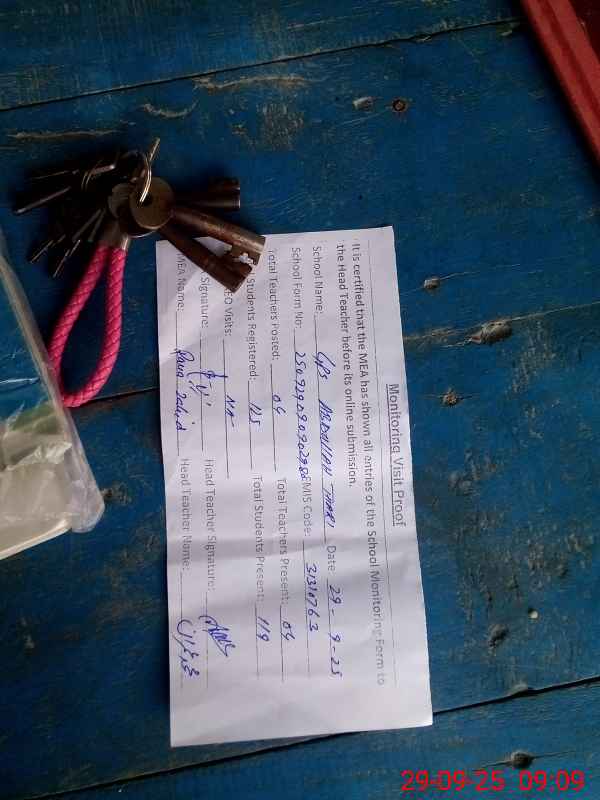 Monitoring Visit Proof
It is certified that the MEA has shown all entries of the School Monitoring Form to
the Head Teacher before its online submission.
School Name: GPS ABDULLAH THARI Date: 29-9-25
School Form No: EMIS Code: 31310763
Total Teachers Posted: 04 Total Teachers Present: 04
Students Registered: 125 Total Students Present: 119
EO Visits:
Signature: Head Teacher Signature:
MEA Name: Rana Zahid Head Teacher Name:
29-09-25 09:09